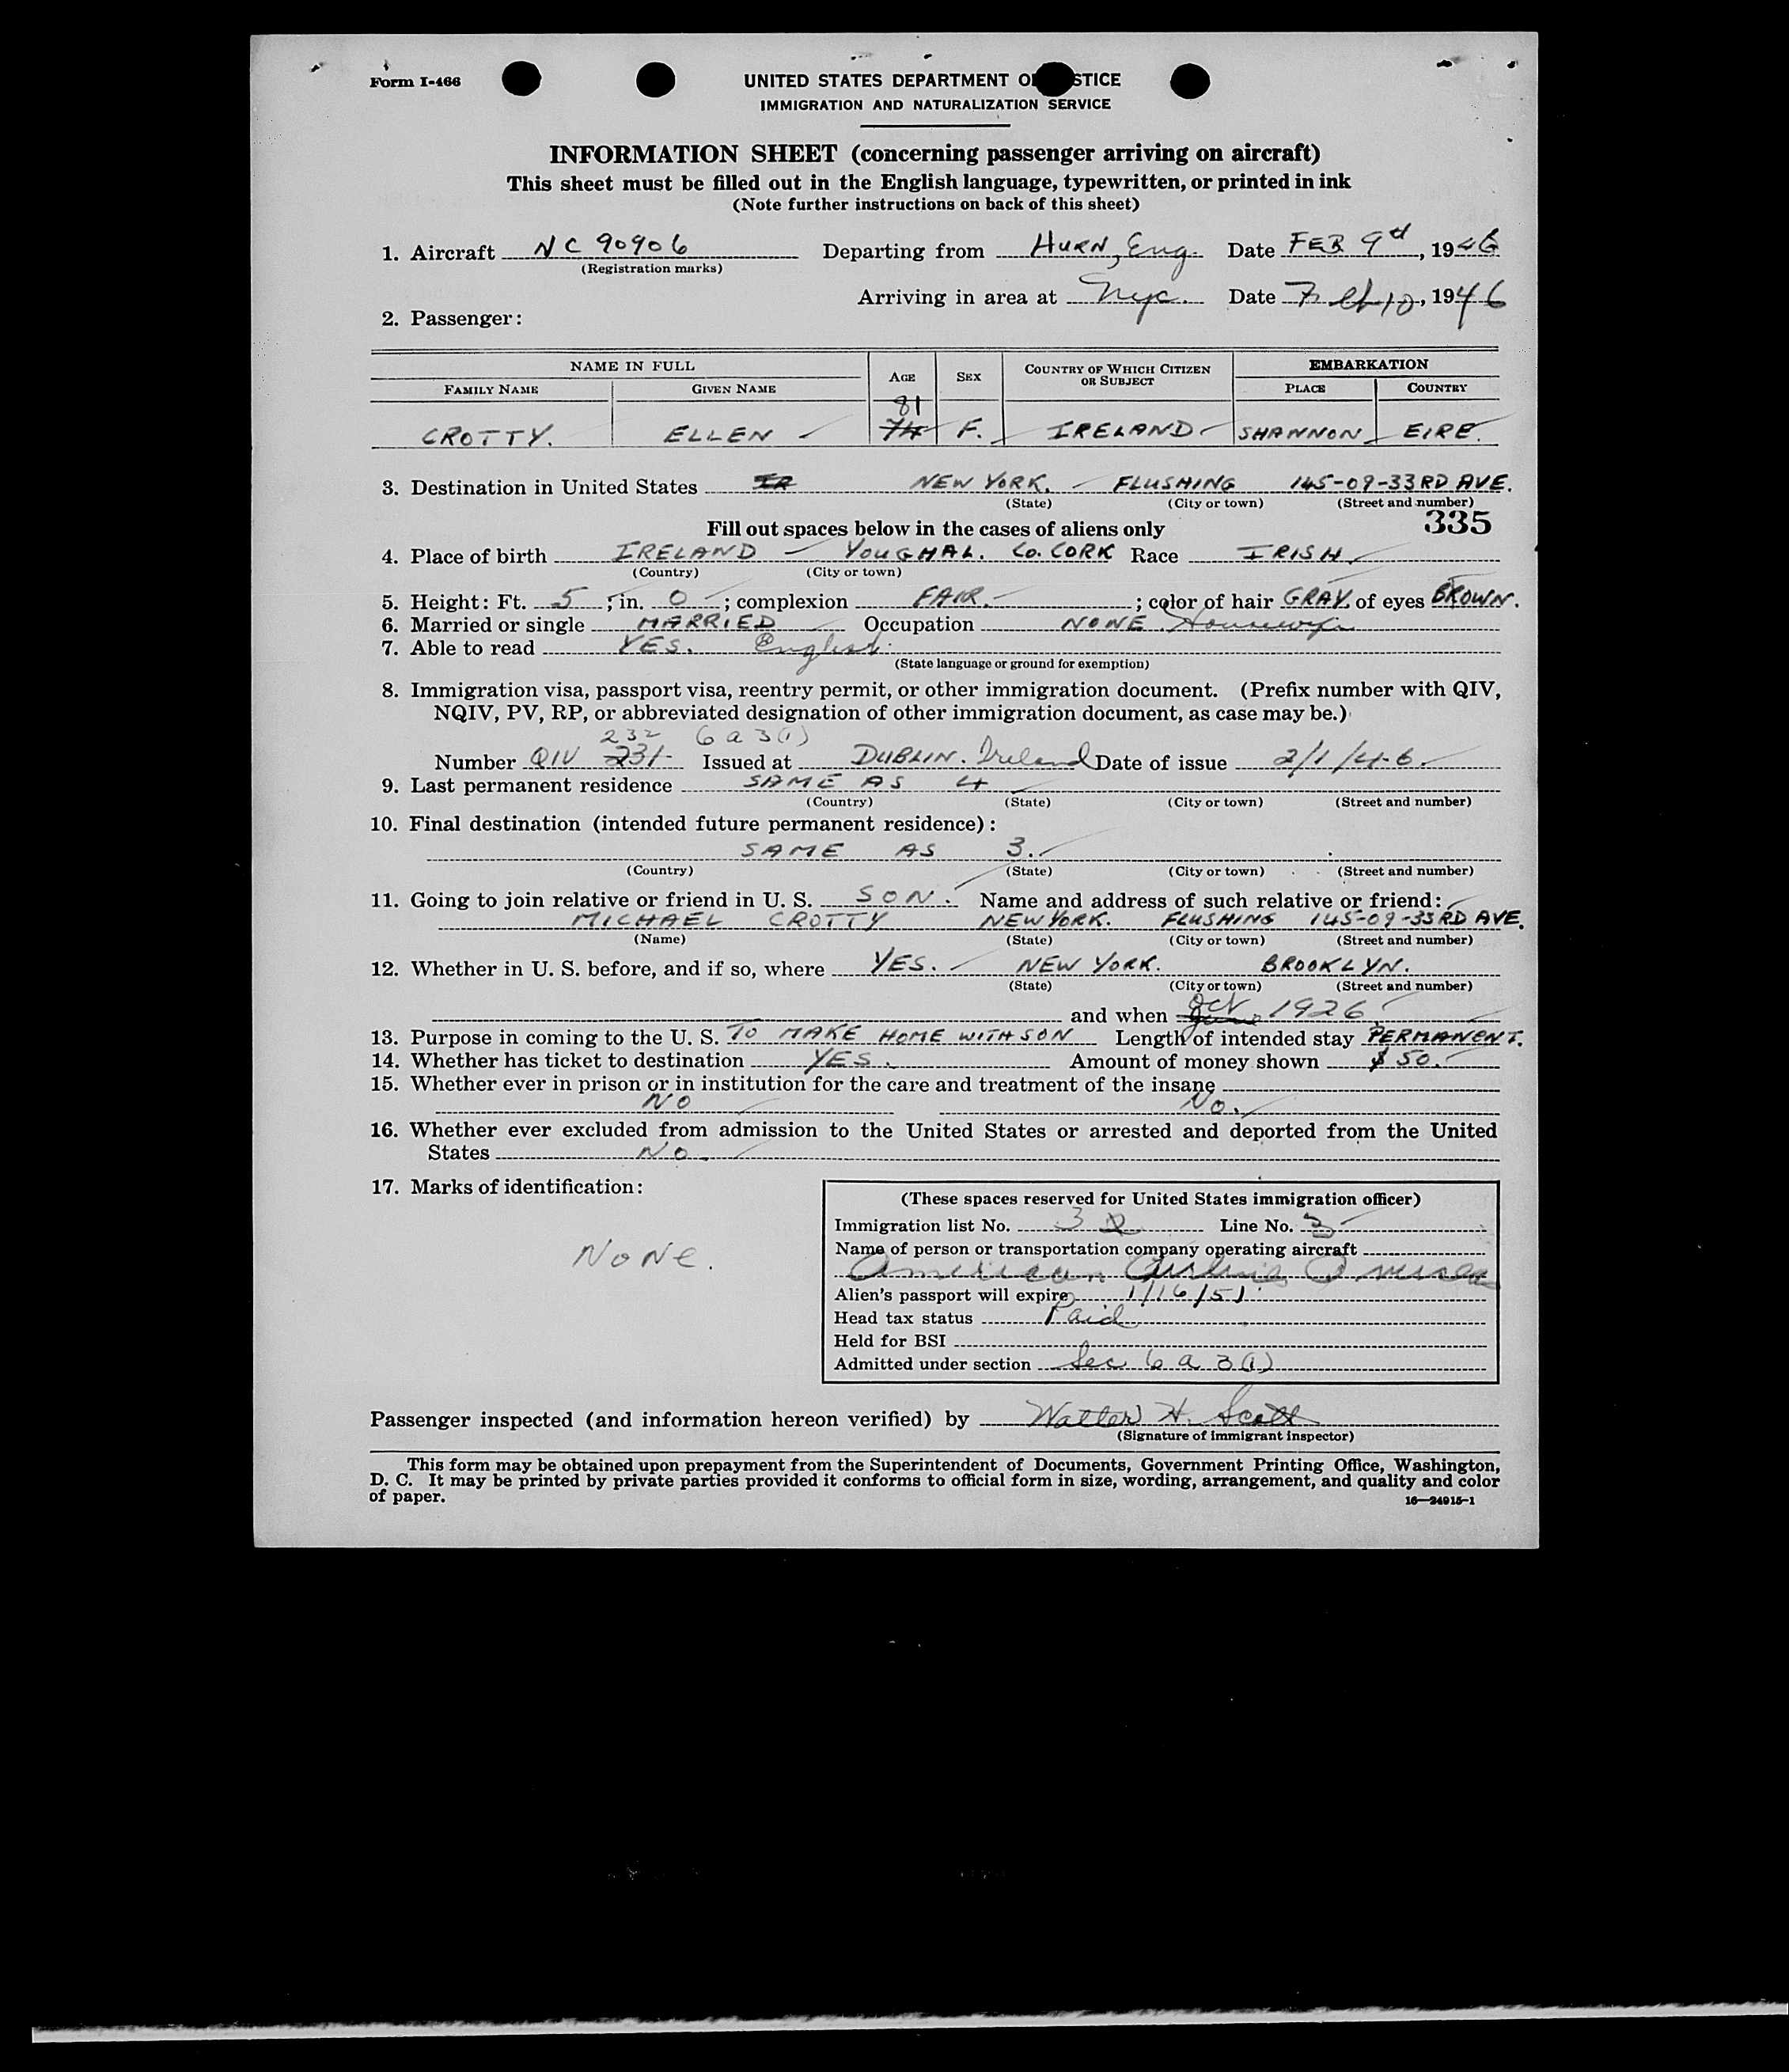 Form I-466
UNITED STATES DEPARTMENT O STICE
IMMIGRATION AND NATURALIZATION SERVICE
INFORMATION SHEET (concerning passenger arriving on aircraft)
This sheet must be filled out in the English language, typewritten, or printed in ink
(Note further instructions on back of this sheet)
1. Aircraft NC 90906 Departing from HURN, Eng. Date FEB 9th, 1946
(Registration marks)
Arriving in area at Nyc. Date Feb 10, 1946
2. Passenger:
NAME IN FULL AGE SEX COUNTRY OF WHICH CITIZEN OR SUBJECT EMBARKATION
FAMILY NAME GIVEN NAME PLACE COUNTRY
81
CROTTY. ELLEN 74 F. IRELAND SHANNON EIRE.
3. Destination in United States IR NEW YORK. FLUSHING 145-09-33RD AVE.
(State) (City or town) (Street and number)
Fill out spaces below in the cases of aliens only 335
4. Place of birth IRELAND — YOUGHAL. Co. CORK Race IRISH
(Country) (City or town)
5. Height: Ft. 5 ; in. 0 ; complexion FAIR. ; color of hair GRAY. of eyes BROWN.
6. Married or single MARRIED Occupation NONE. Housewife
7. Able to read YES. English.
(State language or ground for exemption)
8. Immigration visa, passport visa, reentry permit, or other immigration document. (Prefix number with QIV,
NQIV, PV, RP, or abbreviated designation of other immigration document, as case may be.)
232 6 a 3(1)
Number QIV 231- Issued at DUBLIN. Ireland Date of issue 2/1/46.
9. Last permanent residence SAME AS 4
(Country) (State) (City or town) (Street and number)
10. Final destination (intended future permanent residence):
SAME AS 3.
(Country) (State) (City or town) (Street and number)
11. Going to join relative or friend in U. S. SON. Name and address of such relative or friend:
MICHAEL CROTTY NEW YORK. FLUSHING 145-09-33RD AVE.
(Name) (State) (City or town) (Street and number)
12. Whether in U. S. before, and if so, where YES. NEW YORK. BROOKLYN.
(State) (City or town) (Street and number)
and when Oct 1926
13. Purpose in coming to the U. S. TO MAKE HOME WITH SON Length of intended stay PERMANENT.
14. Whether has ticket to destination YES. Amount of money shown $50.
15. Whether ever in prison or in institution for the care and treatment of the insane
NO No.
16. Whether ever excluded from admission to the United States or arrested and deported from the United
States No.
17. Marks of identification:
NONE.
(These spaces reserved for United States immigration officer)
Immigration list No. 3 Line No. 3
Name of person or transportation company operating aircraft
American Airlines Overseas
Alien's passport will expire 1/16/51.
Head tax status Paid
Held for BSI
Admitted under section Sec 6 a 3(1)
Passenger inspected (and information hereon verified) by Walter H. Scott
(Signature of immigrant inspector)
This form may be obtained upon prepayment from the Superintendent of Documents, Government Printing Office, Washington,
D. C. It may be printed by private parties provided it conforms to official form in size, wording, arrangement, and quality and color
of paper.
16—24915-1